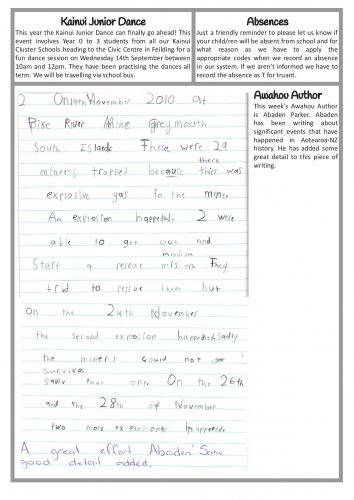 Kainui Junior Dance
This year the Kainui Junior Dance can finally go ahead! This
event involves Year 0 to 3 students from all our Kainui
Cluster Schools heading to the Civic Centre in Feilding for a
fun dance session on Wednesday 14th September between
10am and 12pm. They have been practising the dances all
term. We will be travelling via school bus.
Absences
Just a friendly reminder to please let us know if
your child/ren will be absent from school and for
what reason as we have to apply the
appropriate codes when we record an absence
in our system. If we aren't informed we have to
record the absence as T for truant.
Awahou Author
This week's Awahou Author
is Abaden Parker. Abaden
has been writing about
significant events that have
happened in Aotearoa-NZ
history. He has added some
great detail to this piece of
writing.
2 On 19th November 2010 at
Pike River Mine Greymouth
South Island. There were 29
miners trapped because there was
explosive gas in the mine.
An explosion happened. 2 were
able to get out and
Start a rescue mission They
tried to rescue them but
On the 24th November
the second explosion happened sadly
the miners could not
survive
sadly that one. On the 26th
and the 28th of November
two more explosions happened.
A great effort Abaden! Some
good detail added.